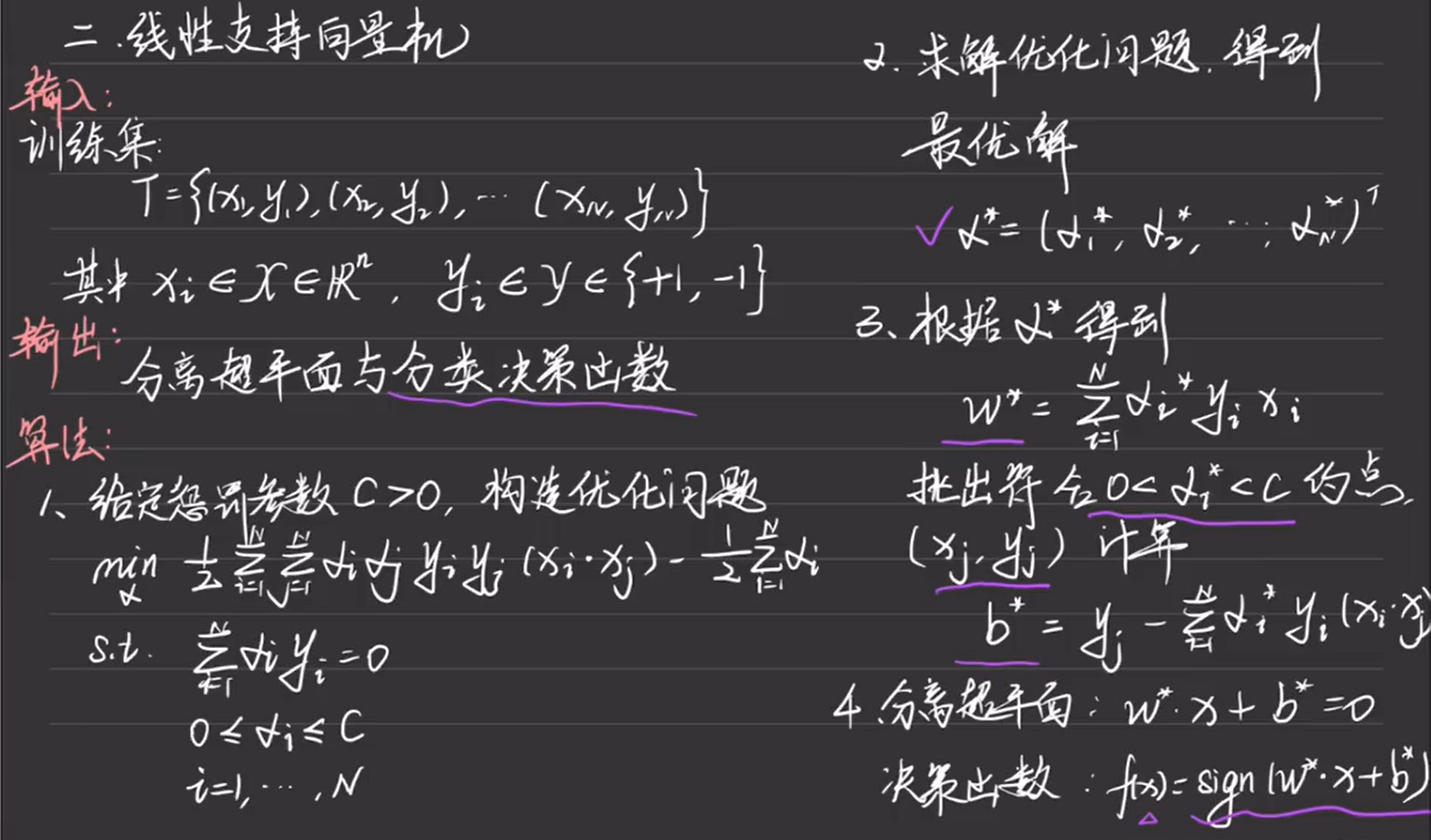 二.线性支持向量机
输入:
训练集:
T={(x₁,y₁),(x₂,y₂),⋯(x_N,y_N)}
其中 x_i∈X∈ℝⁿ, y_i∈Y∈{+1,-1}
输出:
分离超平面与分类决策函数
算法:
1、给定惩罚参数C>0,构造优化问题
min_α 1/2 ∑_{i=1}^N ∑_{j=1}^N α_i α_j y_i y_j (x_i·x_j) - 1/2 ∑_{i=1}^N α_i
s.t. ∑_{i=1}^N α_i y_i=0
0≤α_i≤C
i=1,⋯,N
2.求解优化问题.得到
最优解
✓α*=(α₁*,α₂*,⋯,α_N*)ᵀ
3、根据α*得到
w*=∑_{i=1}^N α_i* y_i x_i
挑出符合0<α_i*<C的点.
(x_j,y_j)计算
b*=y_j-∑_{i=1}^N α_i* y_i(x_i·x_j)
4.分离超平面:w*·x+b*=0
决策函数:f(x)=sign(w*·x+b*)